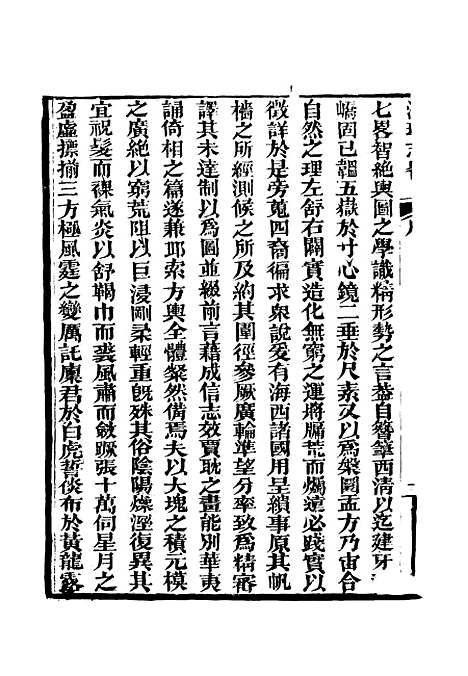 七畧智絶輿圖之學識精形勢之言葢自簪筆西清以迄建牙
嶠固已韞五嶽於寸心鏡二垂於尺素又以爲槃圓盂方乃宙合
自然之理左舒右闢實造化無窮之運將牖荒而爥遠必踐實以
徵詳於是旁蒐四裔徧求衆說爰有海西諸國用呈績事原其帆
檣之所經測候之所及約其圍徑參厥廣輪準望分率致爲精審
譯其未達制以爲圖並綴前言藉成信志效賈耽之畫能别華夷
誦倚相之篇遂兼邱索方輿全體粲然備焉夫以大塊之積元模
之廣絶以窮荒阻以巨浸剛柔輕重旣殊其俗陰陽燥溼復異其
宜祝髮而裸氣炎以舒鞨巾而裘風肅而斂蹶張十萬伺星月之
盈虛摽搠三方極風霆之變厲託廩君於白虎誓倓布於黃龍露